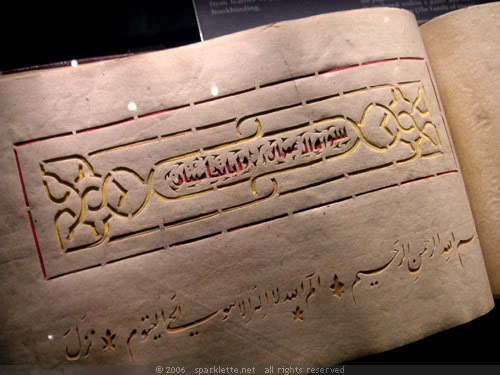 bookbinding.
سورة ال عمران
سم الله الرَّحمنِ الرَّحيم الم الله لا اله الا هو الحي القيوم نَزَلَ
© 2006 sparklette.net all rights reserved